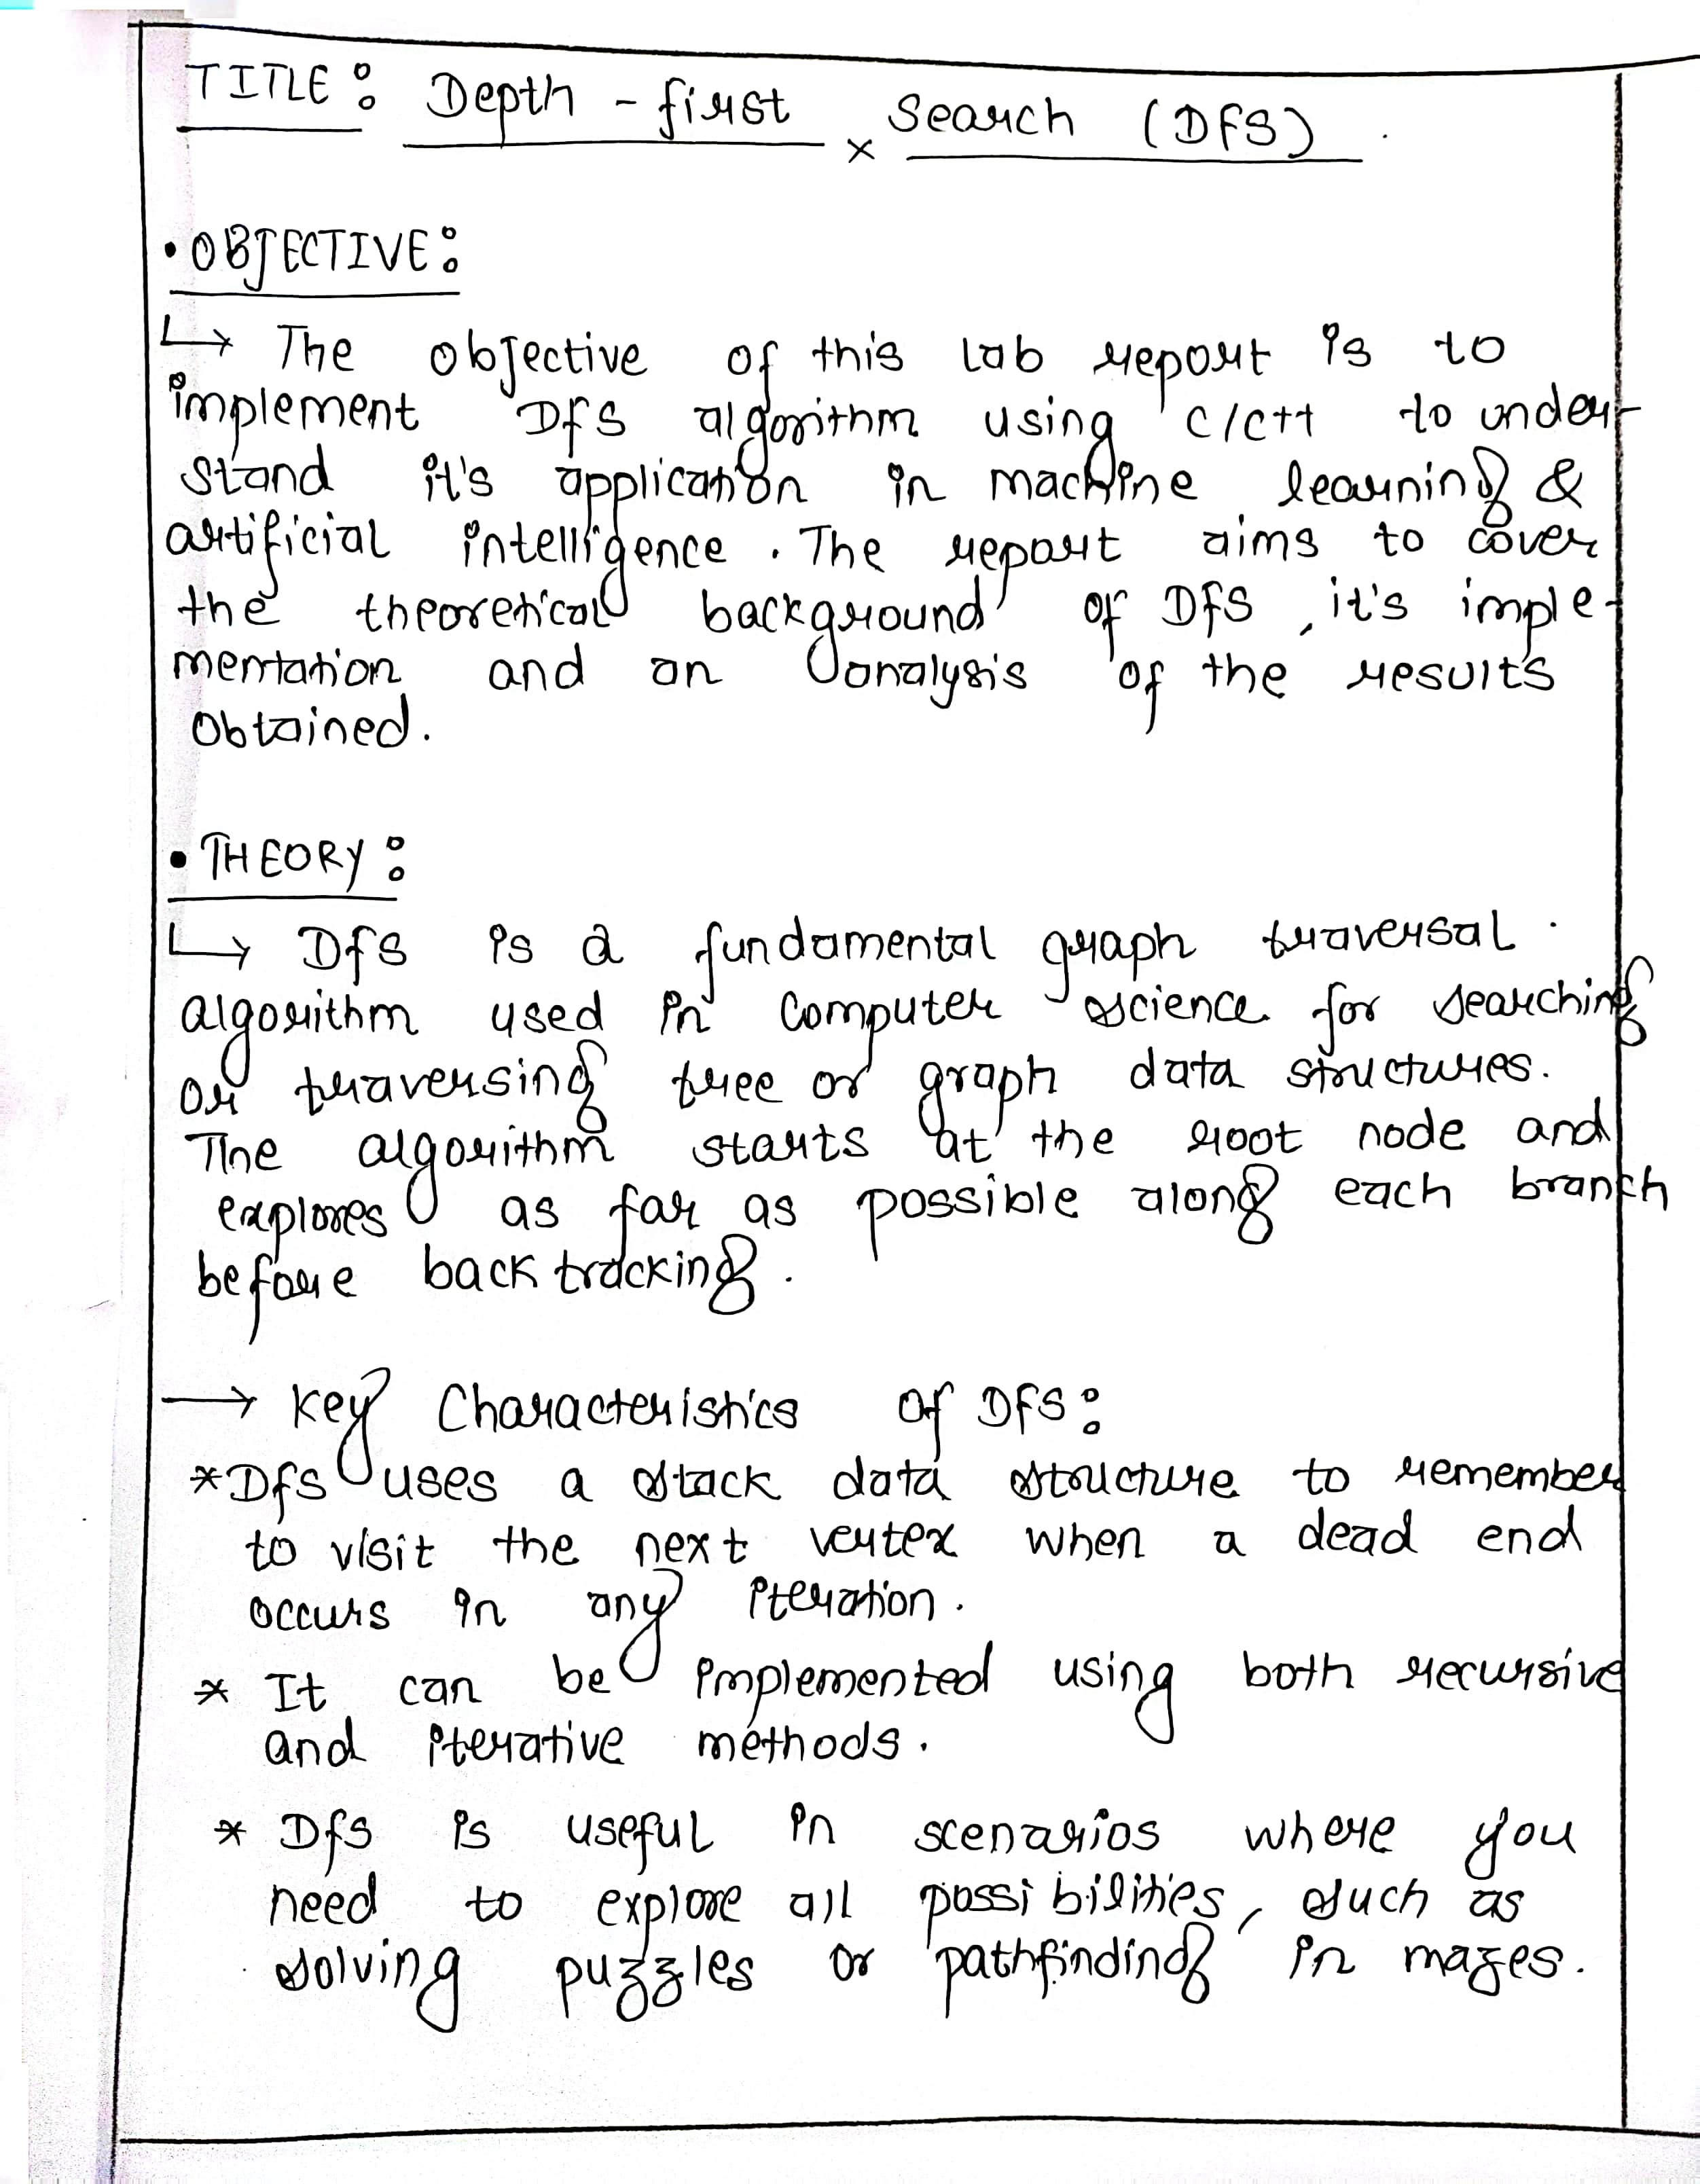 TITLE: Depth - first x Search (DFS).
• OBJECTIVE:
↳ The objective of this lab report is to
implement DFS algorithm using C/C++ to under-
stand it's application in machine learning &
artificial intelligence. The report aims to cover
the theoretical background of DFS, it's imple-
mentation and an analysis of the results
obtained.
• THEORY:
↳ DFS is a fundamental graph traversal.
algorithm used in computer science for searching
or traversing tree or graph data structures.
The algorithm starts at the root node and
explores as far as possible along each branch
before back tracking.
→ Key Characteristics of DFS:
* DFS uses a stack data structure to remember
to visit the next vertex when a dead end
occurs in any iteration.
* It can be implemented using both recursive
and iterative methods.
* DFS is useful in scenarios where you
need to explore all possibilities, such as
solving puzzles or pathfinding in mazes.